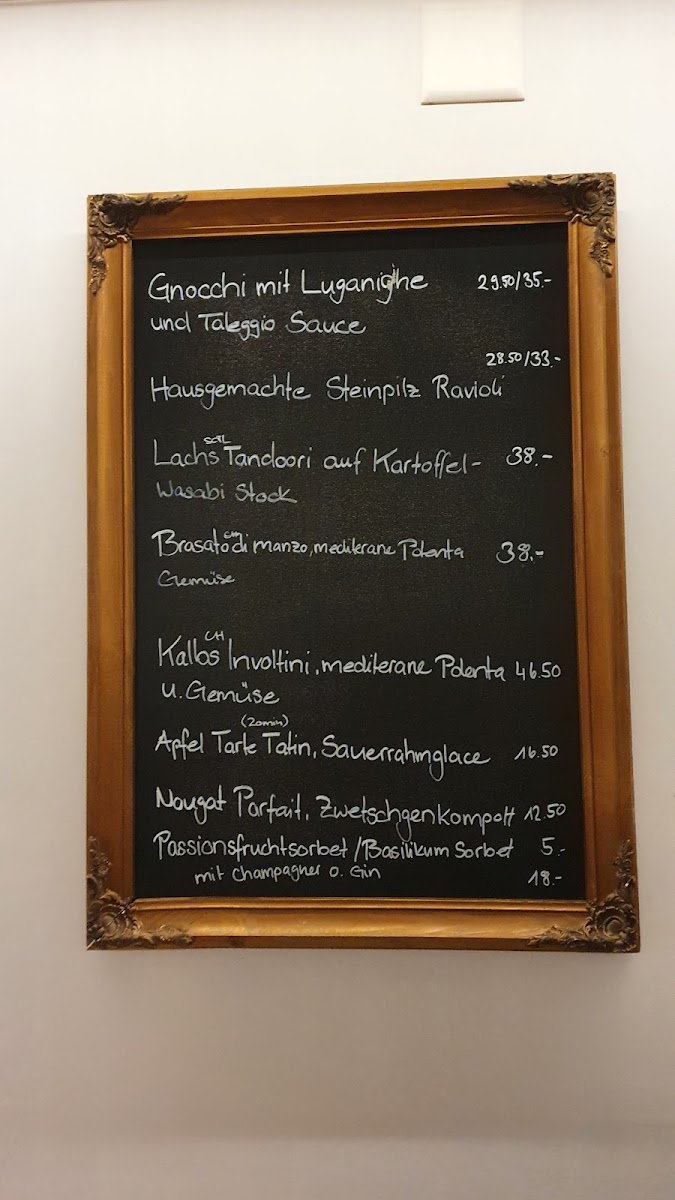 Gnocchi mit Luganighe 29.50/35.-
und Taleggio Sauce
28.50/33.-
Hausgemachte Steinpilz Ravioli
Lachs Tandoori auf Kartoffel- 38.-
Wasabi Stock
CH
Brasato di manzo, mediterane Polenta 38.-
Gemüse
CH
Kalbs Involtini, mediterane Polenta 46.50
u. Gemüse
(20min)
Apfel Tarte Tatin, Sauerrahmglace 16.50
Nougat Parfait, Zwetschgenkompott 12.50
Passionsfruchtsorbet/Basilikum Sorbet 5.-
mit Champagner o. Gin 18.-